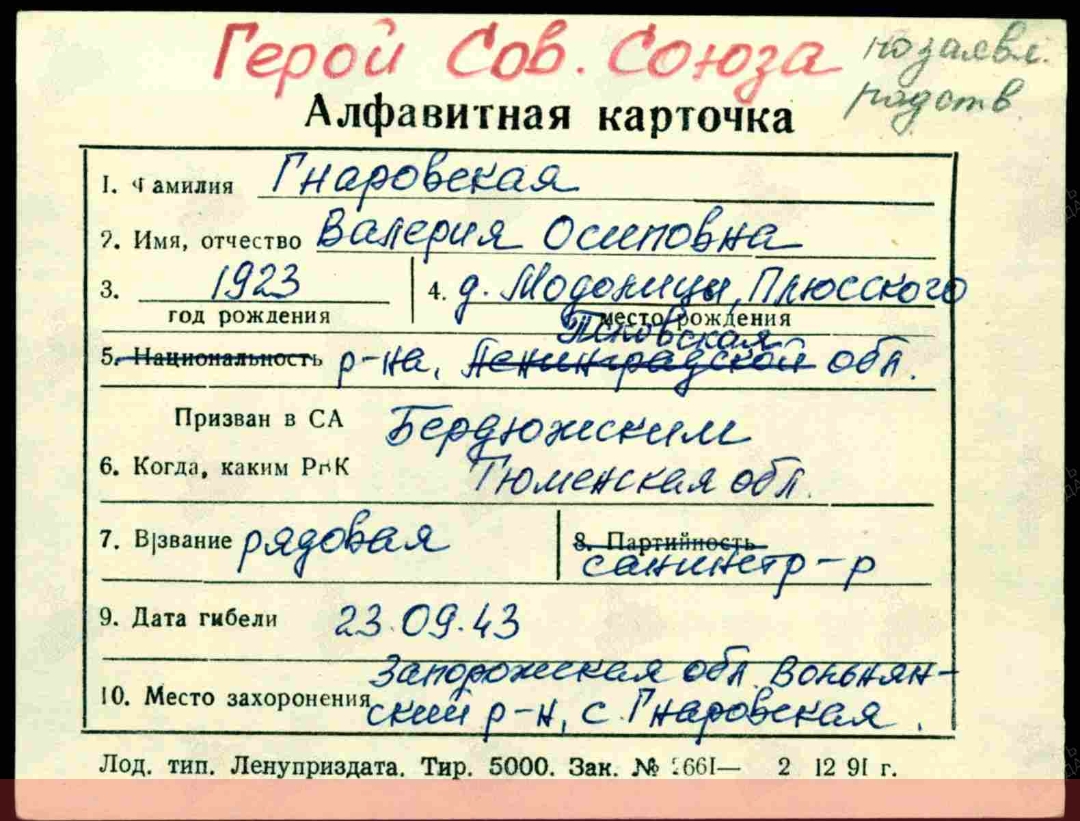 Герой Сов. Союза
по заявл.
родств.
Алфавитная карточка
1. Фамилия Гнаровская
2. Имя, отчество Валерия Осиповна
3. 1923 4. д. Модолицы, Плюсского
год рождения место рождения
Псковская
5. Национальность р-на, Ленинградской обл.
Призван в СА Бердюжским
6. Когда, каким РВК Тюменская обл.
7. В/звание рядовая 8. Партийность
санинстр-р
9. Дата гибели 23.09.43
Запорожская обл. Вольнян-
10. Место захоронения ский р-н, с. Гнаровская.
Лод. тип. Ленуприздата. Тир. 5000. Зак. № 661— 2 12 91 г.